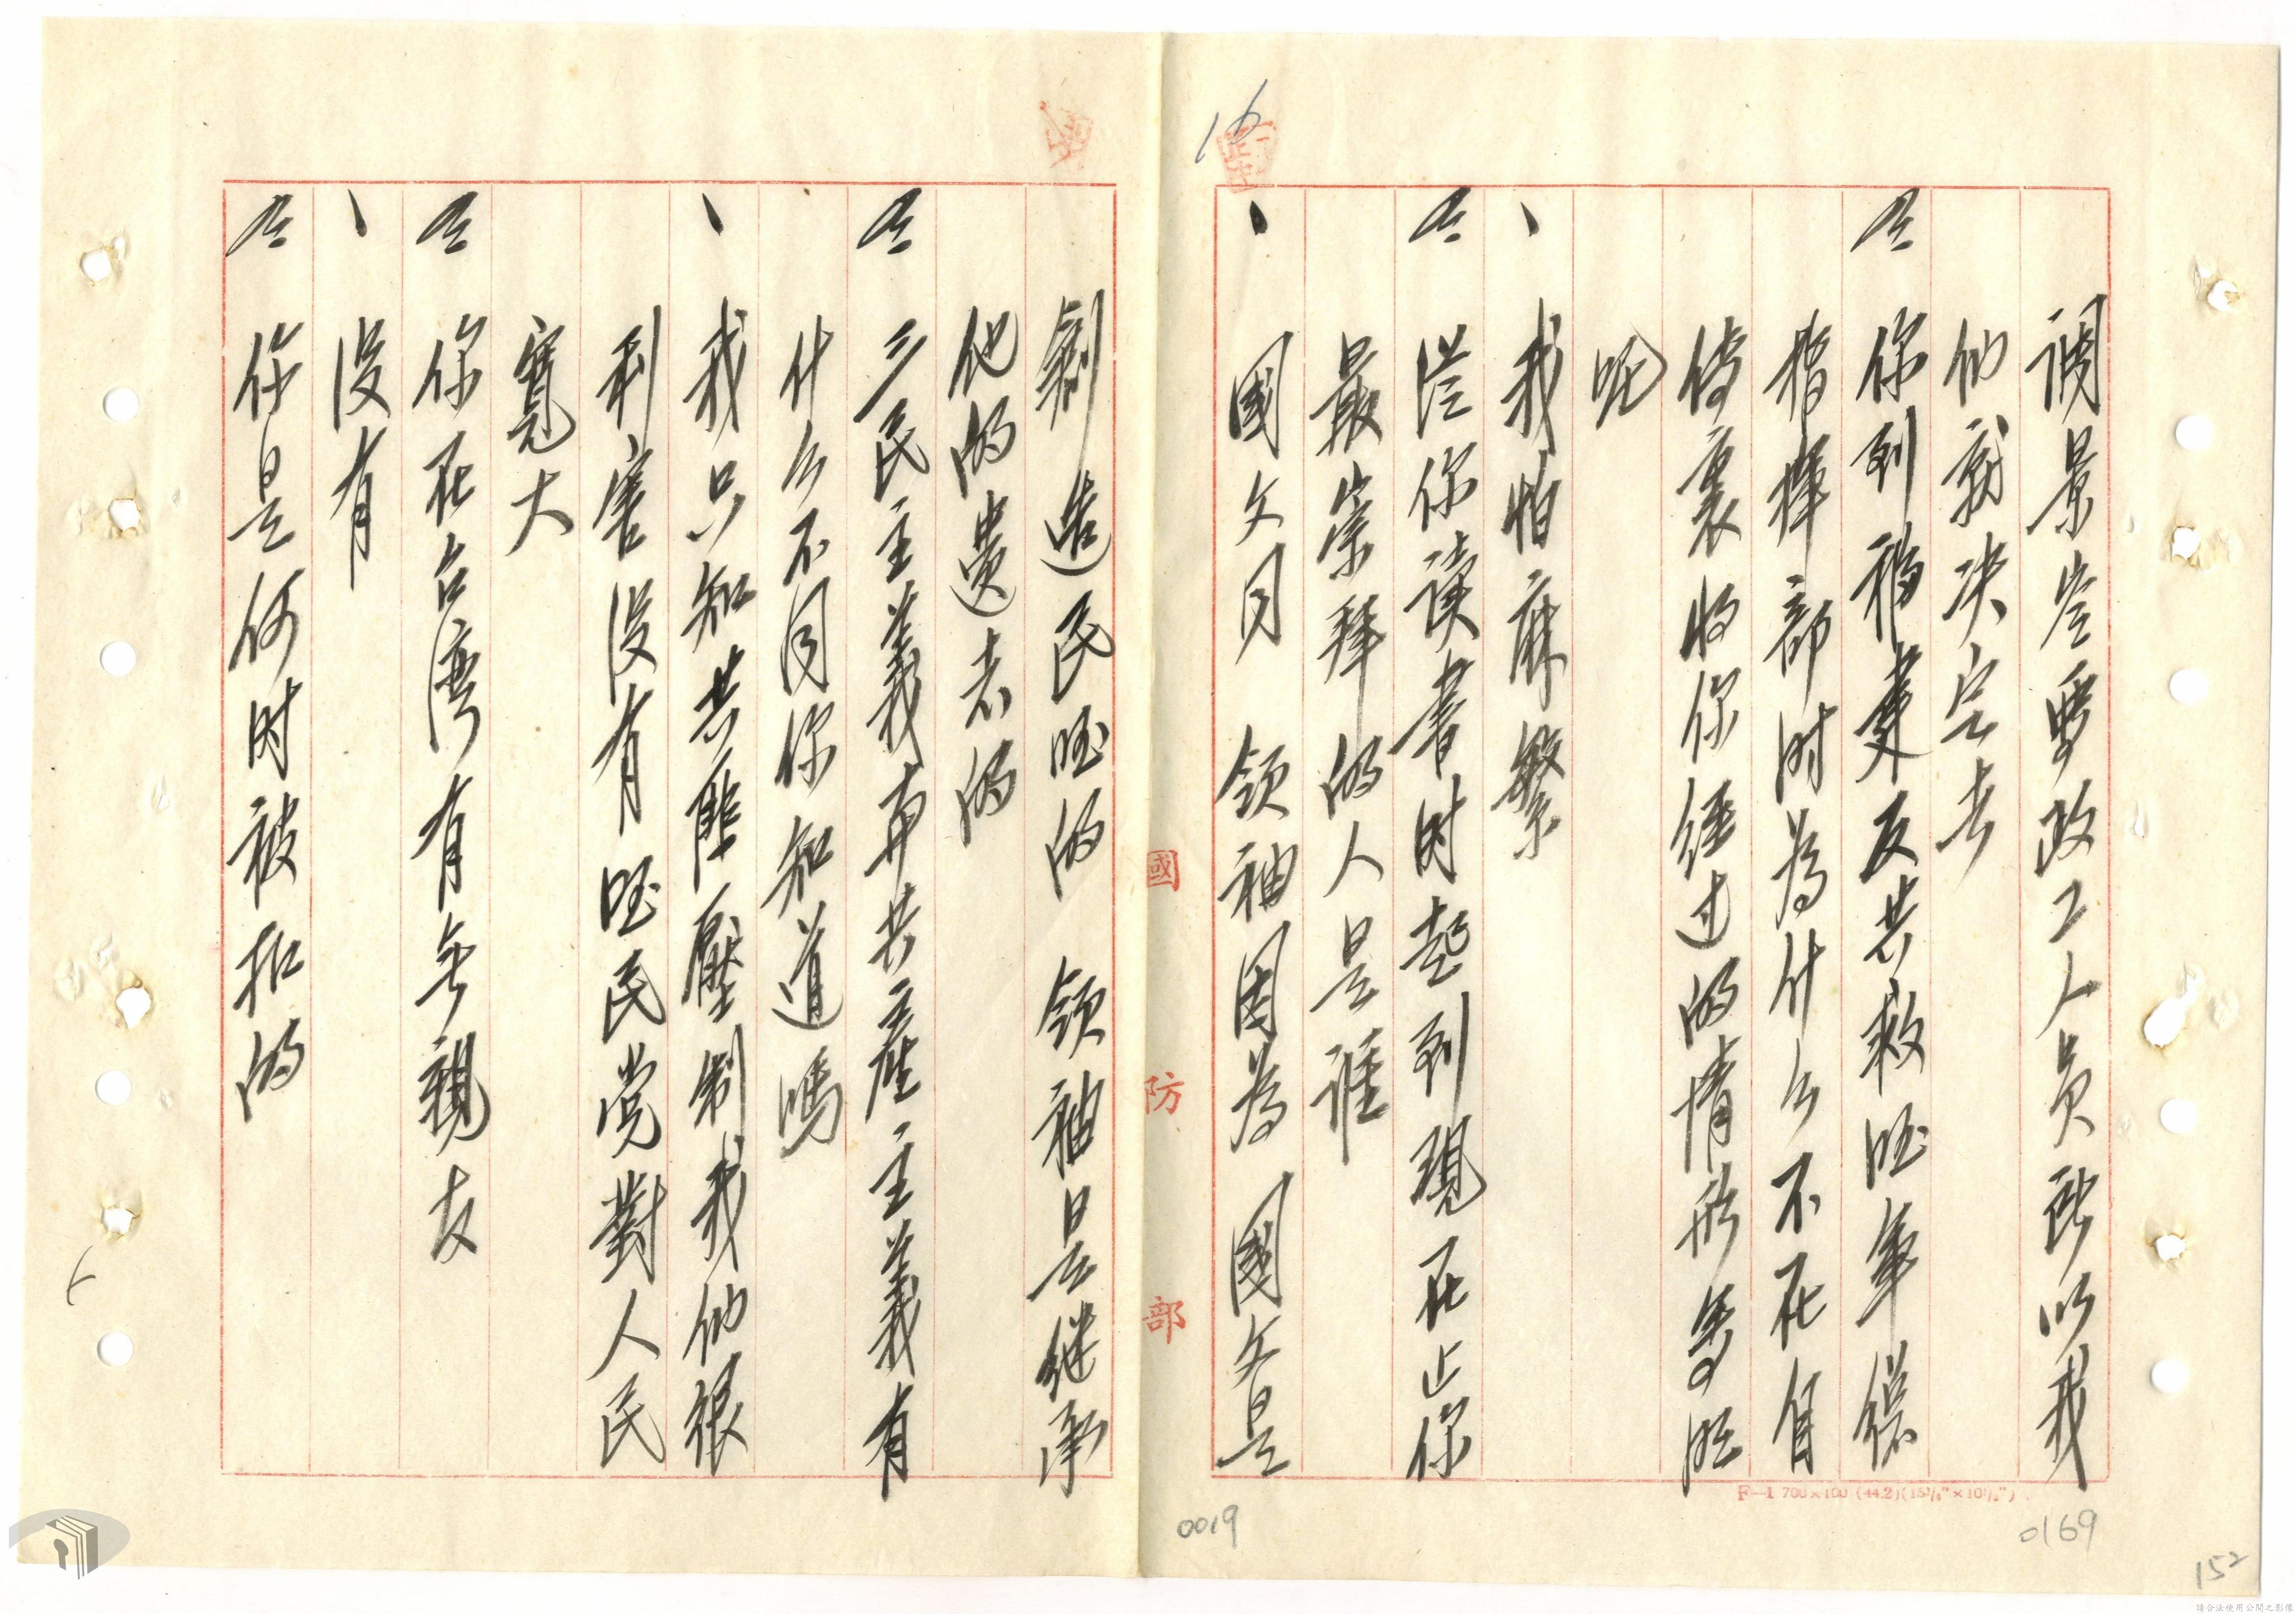 16
調景岺要政工人員所以我
们就決定去
仝 你到福建反共救国軍總
指揮部时為什么不在自
傳裏將你經过的情形寫明
呢
、 我怕麻繁
仝 從你读書时起到現在止你
最崇拜的人是誰
、 國父同 領袖因為 國父是
創造民国的 領袖是继承
他的遗志的
仝 三民主義再共產主義有
什么不同你知道嗎
、 我只知共匪壓制我们很
利害沒有国民党對人民
寬大
仝 你在台湾有无親友
、 没有
仝 你是何时被扣的
國防部
F—1 700×100 (44.2)(15¼"×10½")
0019
0169
152
請合法使用公開之影像